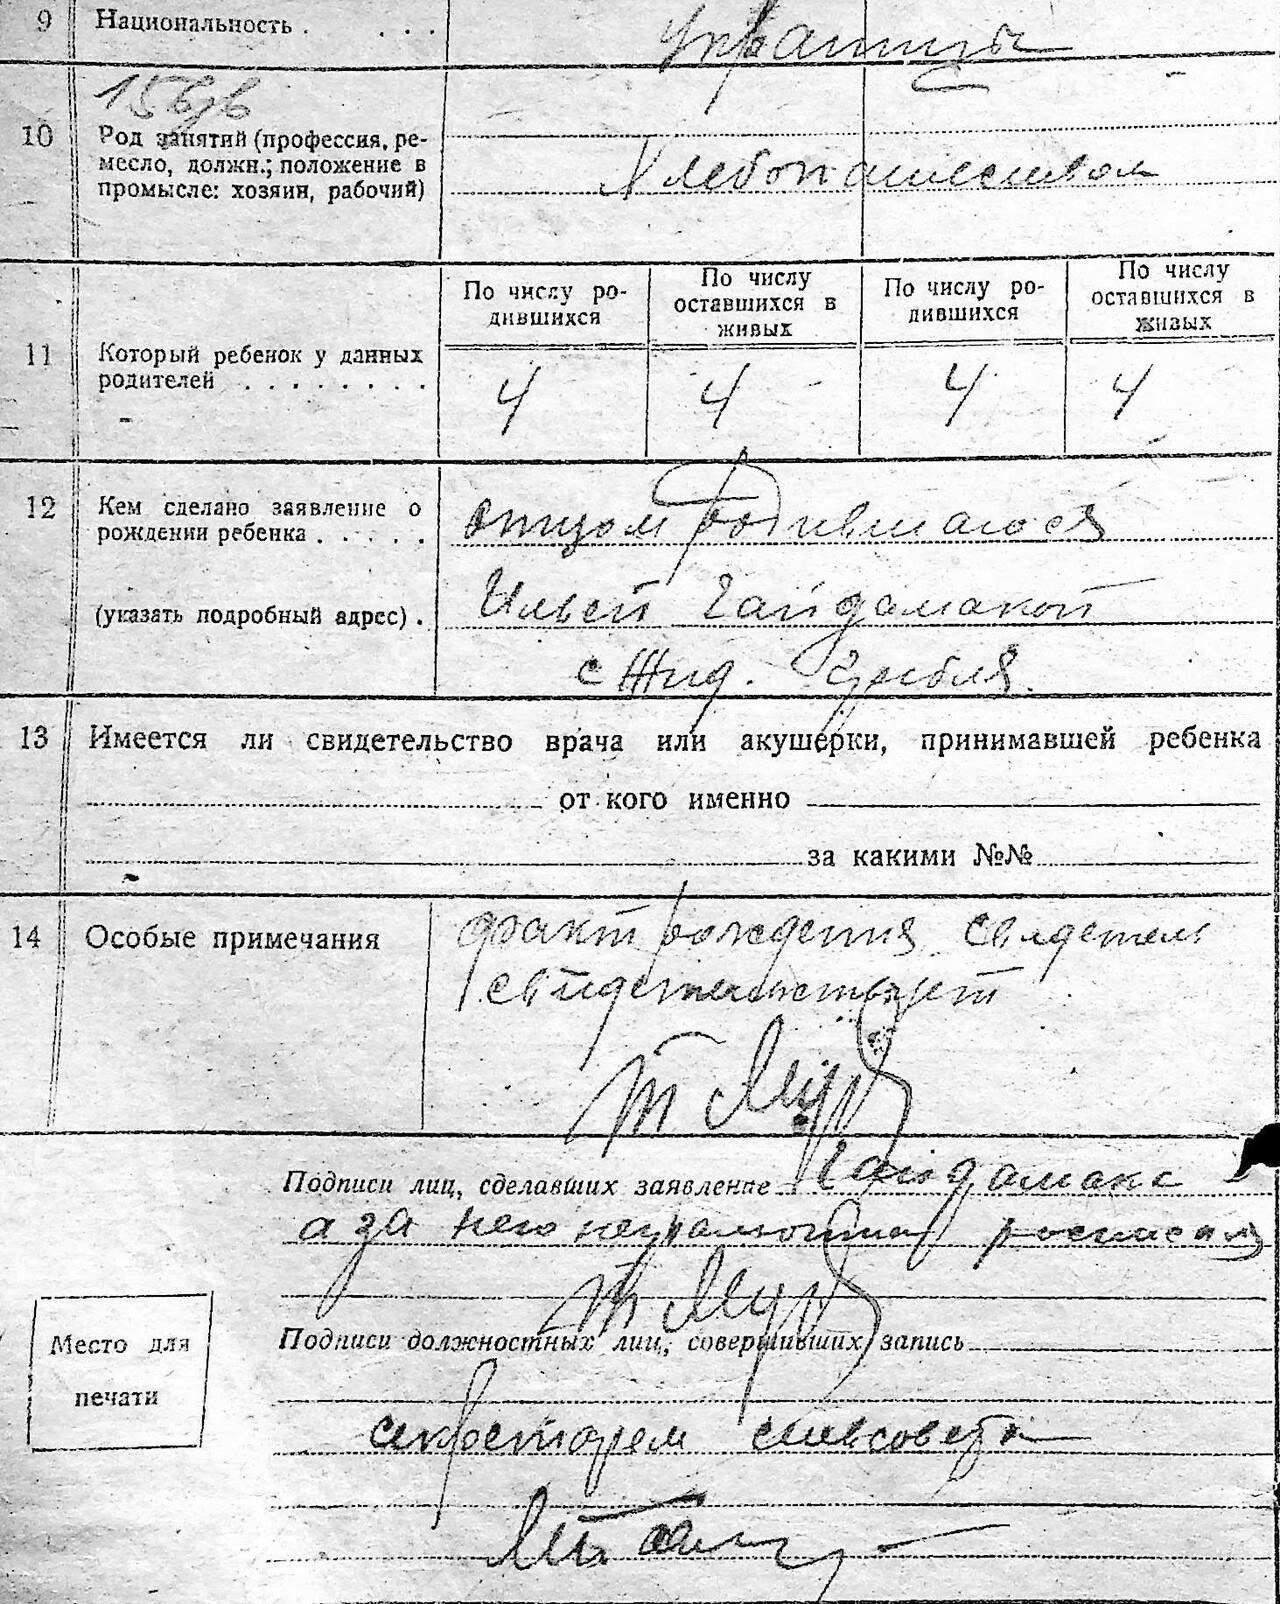 9 Национальность . . . . украинцы
15
10 Род занятий (профессия, ре-
месло, должн.; положение в
промысле: хозяин, рабочий)
Хлебопашеством
11 Который ребенок у данных
родителей . . . . . . . .
По числу ро-
дившихся
По числу
оставшихся в
живых
По числу ро-
дившихся
По числу
оставшихся в
живых
4 4 4 4
12 Кем сделано заявление о
рождении ребенка . . . . .
(указать подробный адрес) .
отцом родившагося
Ильей Гайдамакой
с Жид. Гребля.
13 Имеется ли свидетельство врача или акушерки, принимавшей ребенка
от кого именно
за какими №№
14 Особые примечания
факт рождения свидетель
свидетельствует
Подписи лиц, сделавших заявление Гайдамака
а за него неграмотна росписал
Место для
печати
Подписи должностных лиц, совершивших запись
секретарем сельсовета